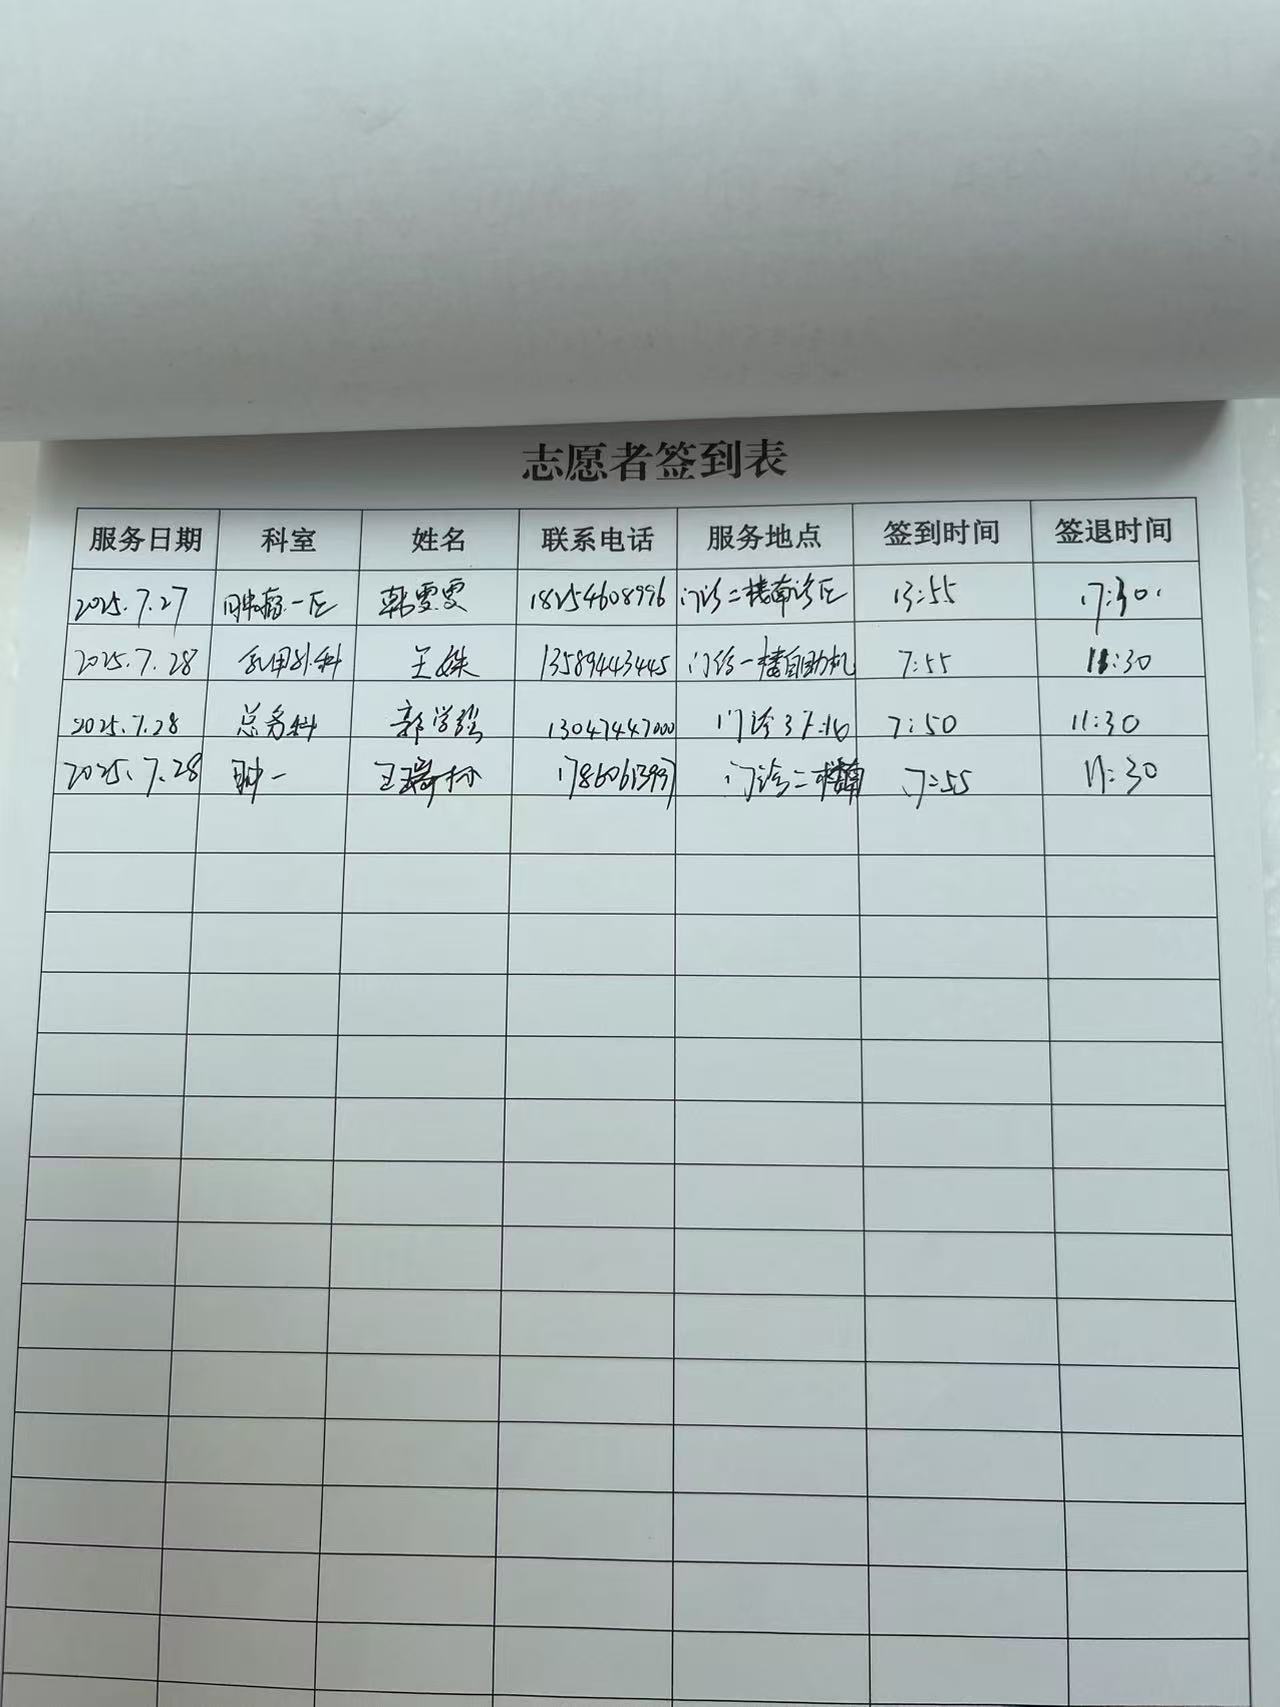 志愿者签到表
服务日期 科室 姓名 联系电话 服务地点 签到时间 签退时间
2025.7.27 肿瘤一区 韩雯雯 18254608996 门诊二楼南诊区 13:55 17:30
2025.7.28 乳甲外科 王姝 13589443445 门诊一楼自助机 7:55 11:30
2025.7.28 总务科 郭学 13047447000 门诊 7:50 11:30
2025.7.28 肿一 王瑞 17860613997 门诊二楼南 7:55 11:30